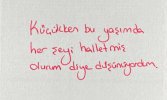 Küçükken bu yaşımda
her şeyi halletmiş
olurum diye düşünüyordum.